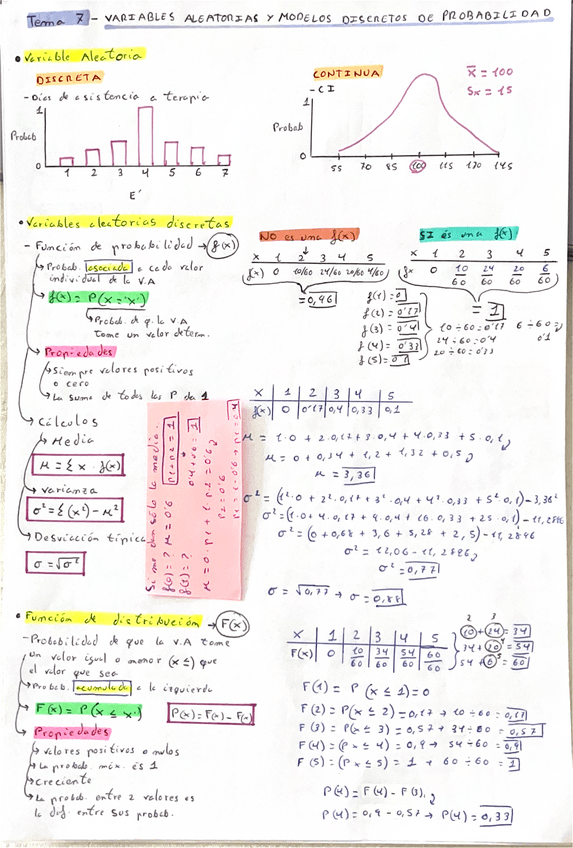 Tema 7 - VARIABLES ALEATORIAS Y MODELOS DISCRETOS DE PROBABILIDAD
• Variable Aleatoria
DISCRETA
- Días de asistencia a terapia
Probab
1
0
1 2 3 4 5 6 7
E'
CONTINUA
- CI
x̄ = 100
Sx = 15
Probab
1
0
55 70 85 100 115 130 145
• Variables aleatorias discretas
- Función de probabilidad → f(x)
Probab. asociada a cada valor
individual de la V.A
f(x) = P(x = x')
Probab. de q. la V.A
tome un valor determ.
Propiedades
Siempre valores positivos
o cero
La suma de todas las P da 1
NO es una f(x)
x 1 2 3 4 5
f(x) 0 10/60 24/60 20/60 4/60
= 0,96
SI és una f(x)
x 1 2 3 4 5
fx 0 10/60 24/60 20/60 6/60
= 1
f(1) = 0
f(2) = 0'17
f(3) = 0'4
f(4) = 0'33
f(5) = 0'1
10 ÷ 60 = 0'17
24 ÷ 60 = 0'4
20 ÷ 60 = 0'33
6 ÷ 60 =
0'1
Cálculos
Media
μ = Σ x · f(x)
varianza
σ² = Σ (x²) - μ²
Desviación típica
σ = √σ²
Si me dan sólo la media
f(0) = ? μ = 0.6
f(1) = ?
p1 + p2 = 1
0.4 + 0.6 = 1
μ = 0 · p1 + 1 · p2 = 0.6
p2 = 0.6
p1 = 1 - 0.6 → p1 = 0.4
X 1 2 3 4 5
f(x) 0 0'17 0,4 0,33 0,1
μ = 1·0 + 2·0,17 + 3·0,4 + 4·0,33 + 5·0,1
μ = 0 + 0,34 + 1,2 + 1,32 + 0,5
μ = 3,36
σ² = (1²·0 + 2²·0,17 + 3²·0,4 + 4²·0,33 + 5²·0,1) - 3,36²
σ² = (1·0 + 4·0,17 + 9·0,4 + 16·0,33 + 25·0,1) - 11,2896
σ² = (0 + 0,68 + 3,6 + 5,28 + 2,5) - 11,2896
σ² = 12,06 - 11,2896
σ² = 0,77
σ = √0,77 → σ = 0,88
• Función de distribución → F(x)
- Probabilidad de que la V.A tome
un valor igual o menor (x ≤) que
el valor que sea
Probab. acumulada a la izquierda
F(x) = P(x ≤ x')
P(x) = F(x) - F(x)
Propiedades
valores positivos o nulos
La probab. máx. és 1
creciente
La probab. entre 2 valores es
la dif. entre sus probab.
X 1 2 3 4 5
F(x) 0 10/60 34/60 54/60 60/60
2 3
10 + 24 = 34
34 + 20 = 54
54 + 6 = 60
F(1) = P(x ≤ 1) = 0
F(2) = P(x ≤ 2) = 0,17 → 10 ÷ 60 = 0,17
F(3) = P(x ≤ 3) = 0,57 + 34 ÷ 60 = 0,57
F(4) = (P x ≤ 4) = 0,9 → 54 ÷ 60 = 0,9
F(5) = (P x ≤ 5) = 1 + 60 ÷ 60 = 1
P(4) = F(4) - F(3)
P(4) = 0,9 - 0,57 → P(4) = 0,33